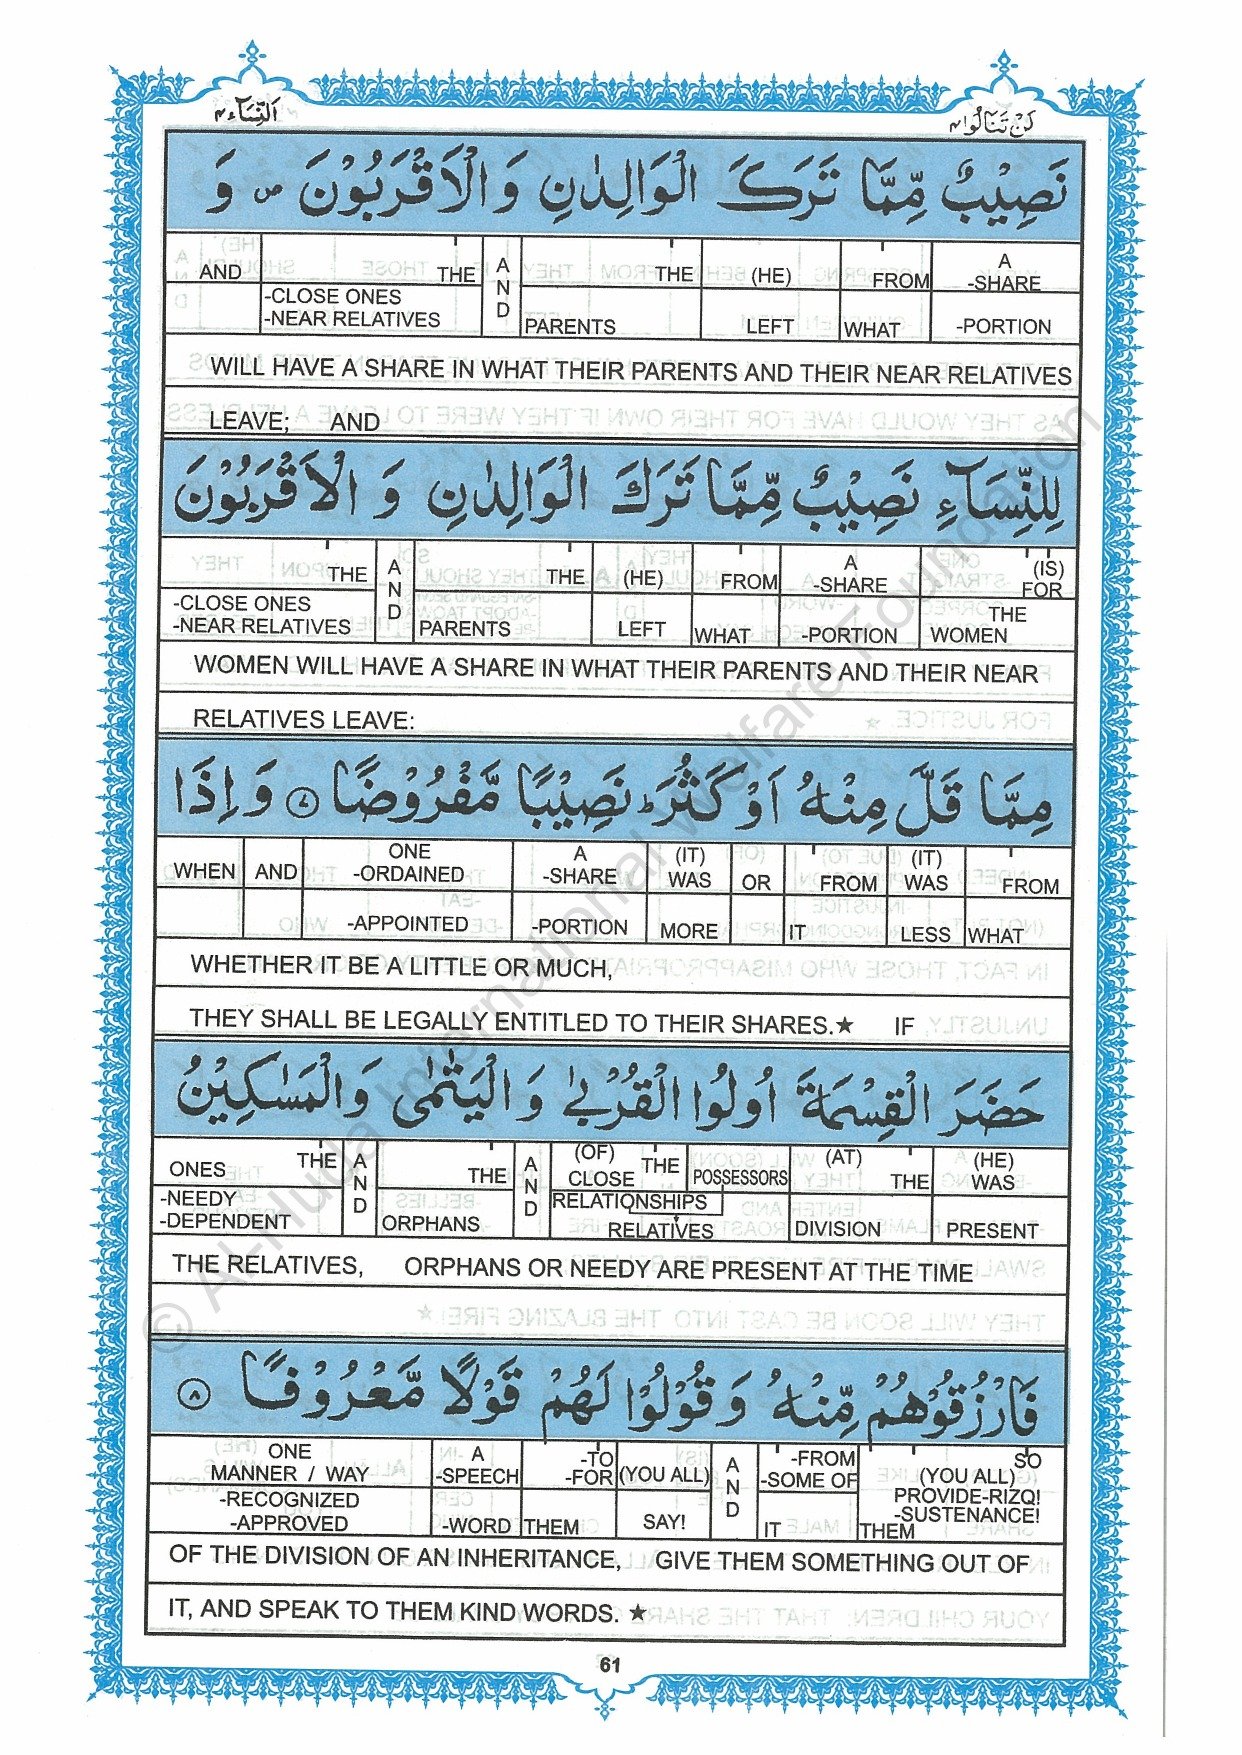 النِّسَآء ٤ لَنْ تَنَالُوا ٤
نَصِيْبٌ مِّمَّا تَرَكَ الْوَالِدٰنِ وَالْاَقْرَبُوْنَ ۖ وَ
AND THE AND THE (HE) FROM A -SHARE
-CLOSE ONES -NEAR RELATIVES PARENTS LEFT WHAT -PORTION
WILL HAVE A SHARE IN WHAT THEIR PARENTS AND THEIR NEAR RELATIVES
LEAVE; AND
لِلنِّسَآءِ نَصِيْبٌ مِّمَّا تَرَكَ الْوَالِدٰنِ وَ الْاَقْرَبُوْنَ
THE AND THE (HE) FROM A -SHARE (IS) FOR
-CLOSE ONES -NEAR RELATIVES PARENTS LEFT WHAT -PORTION THE WOMEN
WOMEN WILL HAVE A SHARE IN WHAT THEIR PARENTS AND THEIR NEAR
RELATIVES LEAVE:
مِمَّا قَلَّ مِنْهُ اَوْ كَثُرَ ؕ نَصِيْبًا مَّفْرُوْضًا ٧ وَاِذَا
WHEN AND ONE -ORDAINED A -SHARE (IT) WAS OR FROM (IT) WAS FROM
-APPOINTED -PORTION MORE IT LESS WHAT
WHETHER IT BE A LITTLE OR MUCH,
THEY SHALL BE LEGALLY ENTITLED TO THEIR SHARES.★ IF
حَضَرَ الْقِسْمَةَ اُولُوا الْقُرْبٰى وَ الْيَتٰمٰى وَالْمَسٰكِيْنُ
ONES THE AND THE AND (OF) CLOSE THE POSSESSORS (AT) THE (HE) WAS
-NEEDY -DEPENDENT ORPHANS RELATIONSHIPS RELATIVES DIVISION PRESENT
THE RELATIVES, ORPHANS OR NEEDY ARE PRESENT AT THE TIME
فَارْزُقُوْهُمْ مِّنْهُ وَقُوْلُوْا لَهُمْ قَوْلًا مَّعْرُوْفًا ٨
ONE MANNER / WAY A -SPEECH -TO -FOR (YOU ALL) AND -FROM -SOME OF SO (YOU ALL) PROVIDE-RIZQ! -SUSTENANCE!
-RECOGNIZED -APPROVED -WORD THEM SAY! IT THEM
OF THE DIVISION OF AN INHERITANCE, GIVE THEM SOMETHING OUT OF
IT, AND SPEAK TO THEM KIND WORDS. ★
61
© Al-Huda International Welfare Foundation